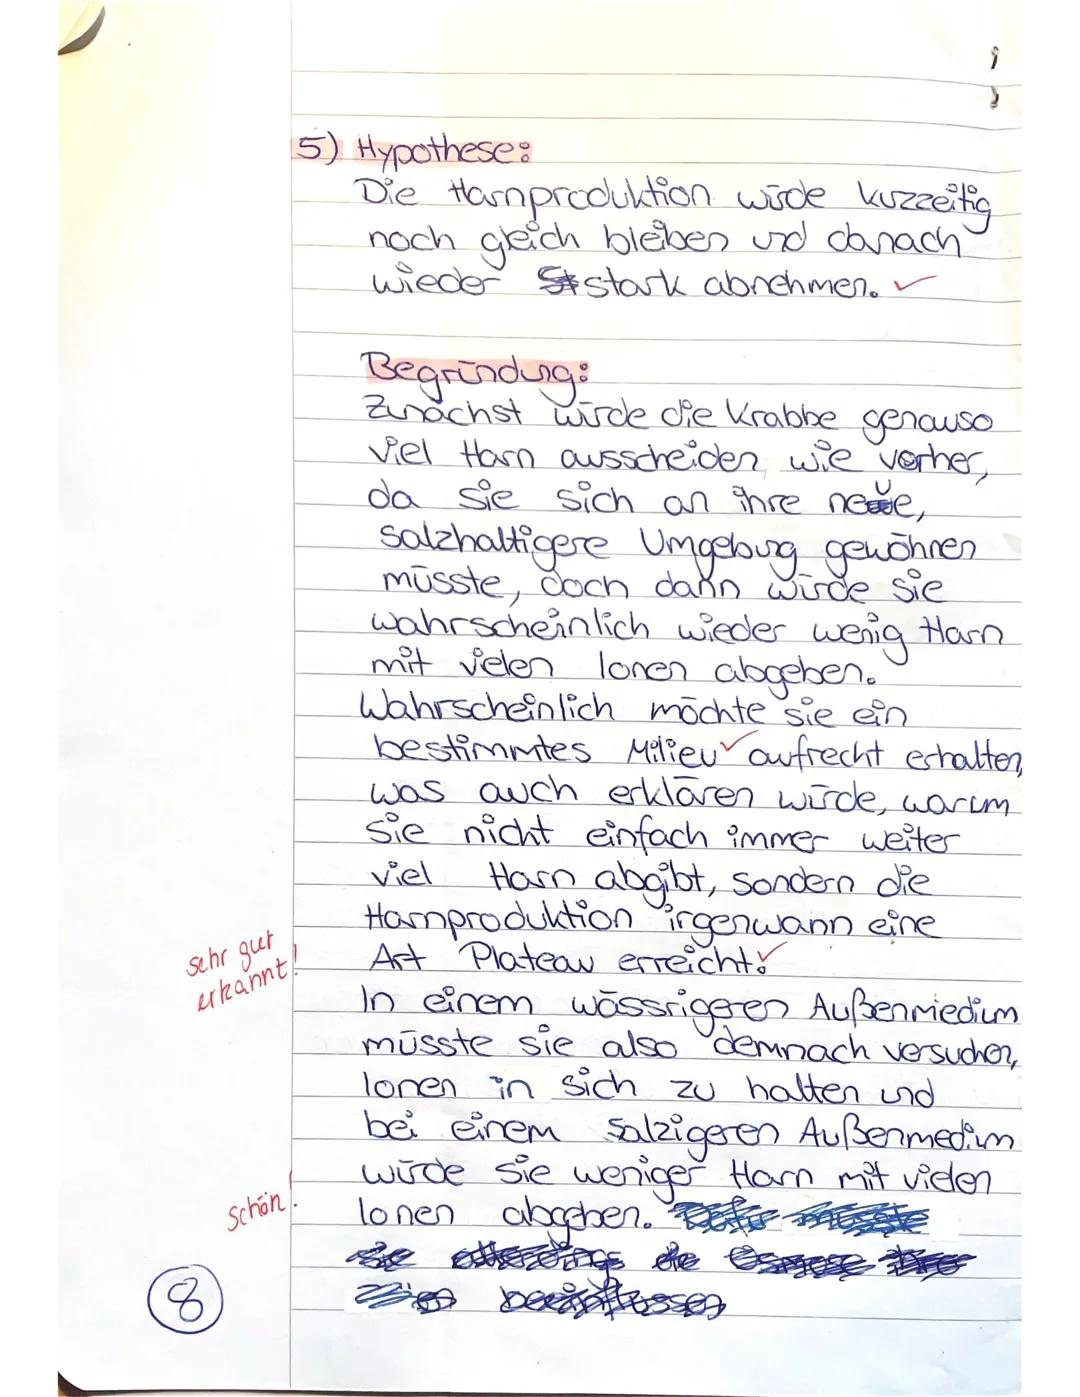 5) Hypothese:
Die Harnproduktion würde kuzzeitig
noch gleich bleiben und danach
wieder stark abnehmen. ✓
Begründung:
Zunächst würde die Krabbe genauso
viel Harn ausscheiden wie vorher,
da sie sich an ihre neue,
salzhaltigere Umgebung gewöhnen
müsste, doch dann würde sie
wahrscheinlich wieder wenig Harn
mit vielen Ionen abgeben.
Wahrscheinlich möchte sie ein
bestimmtes Milieu ✓ aufrecht erhalten,
was auch erklären würde, warum
sie nicht einfach immer weiter
viel Harn abgibt, sondern die
Harnproduktion irgenwann eine
sehr gut
erkannt!
Art Plateau erreicht. ✓
In einem wässrigeren Außenmedium
müsste sie also demnach versuchen,
Ionen in sich zu halten und
bei einem salzigeren Außenmedium
würde sie weniger Harn mit vielen
schön!
Ionen abgeben.
8